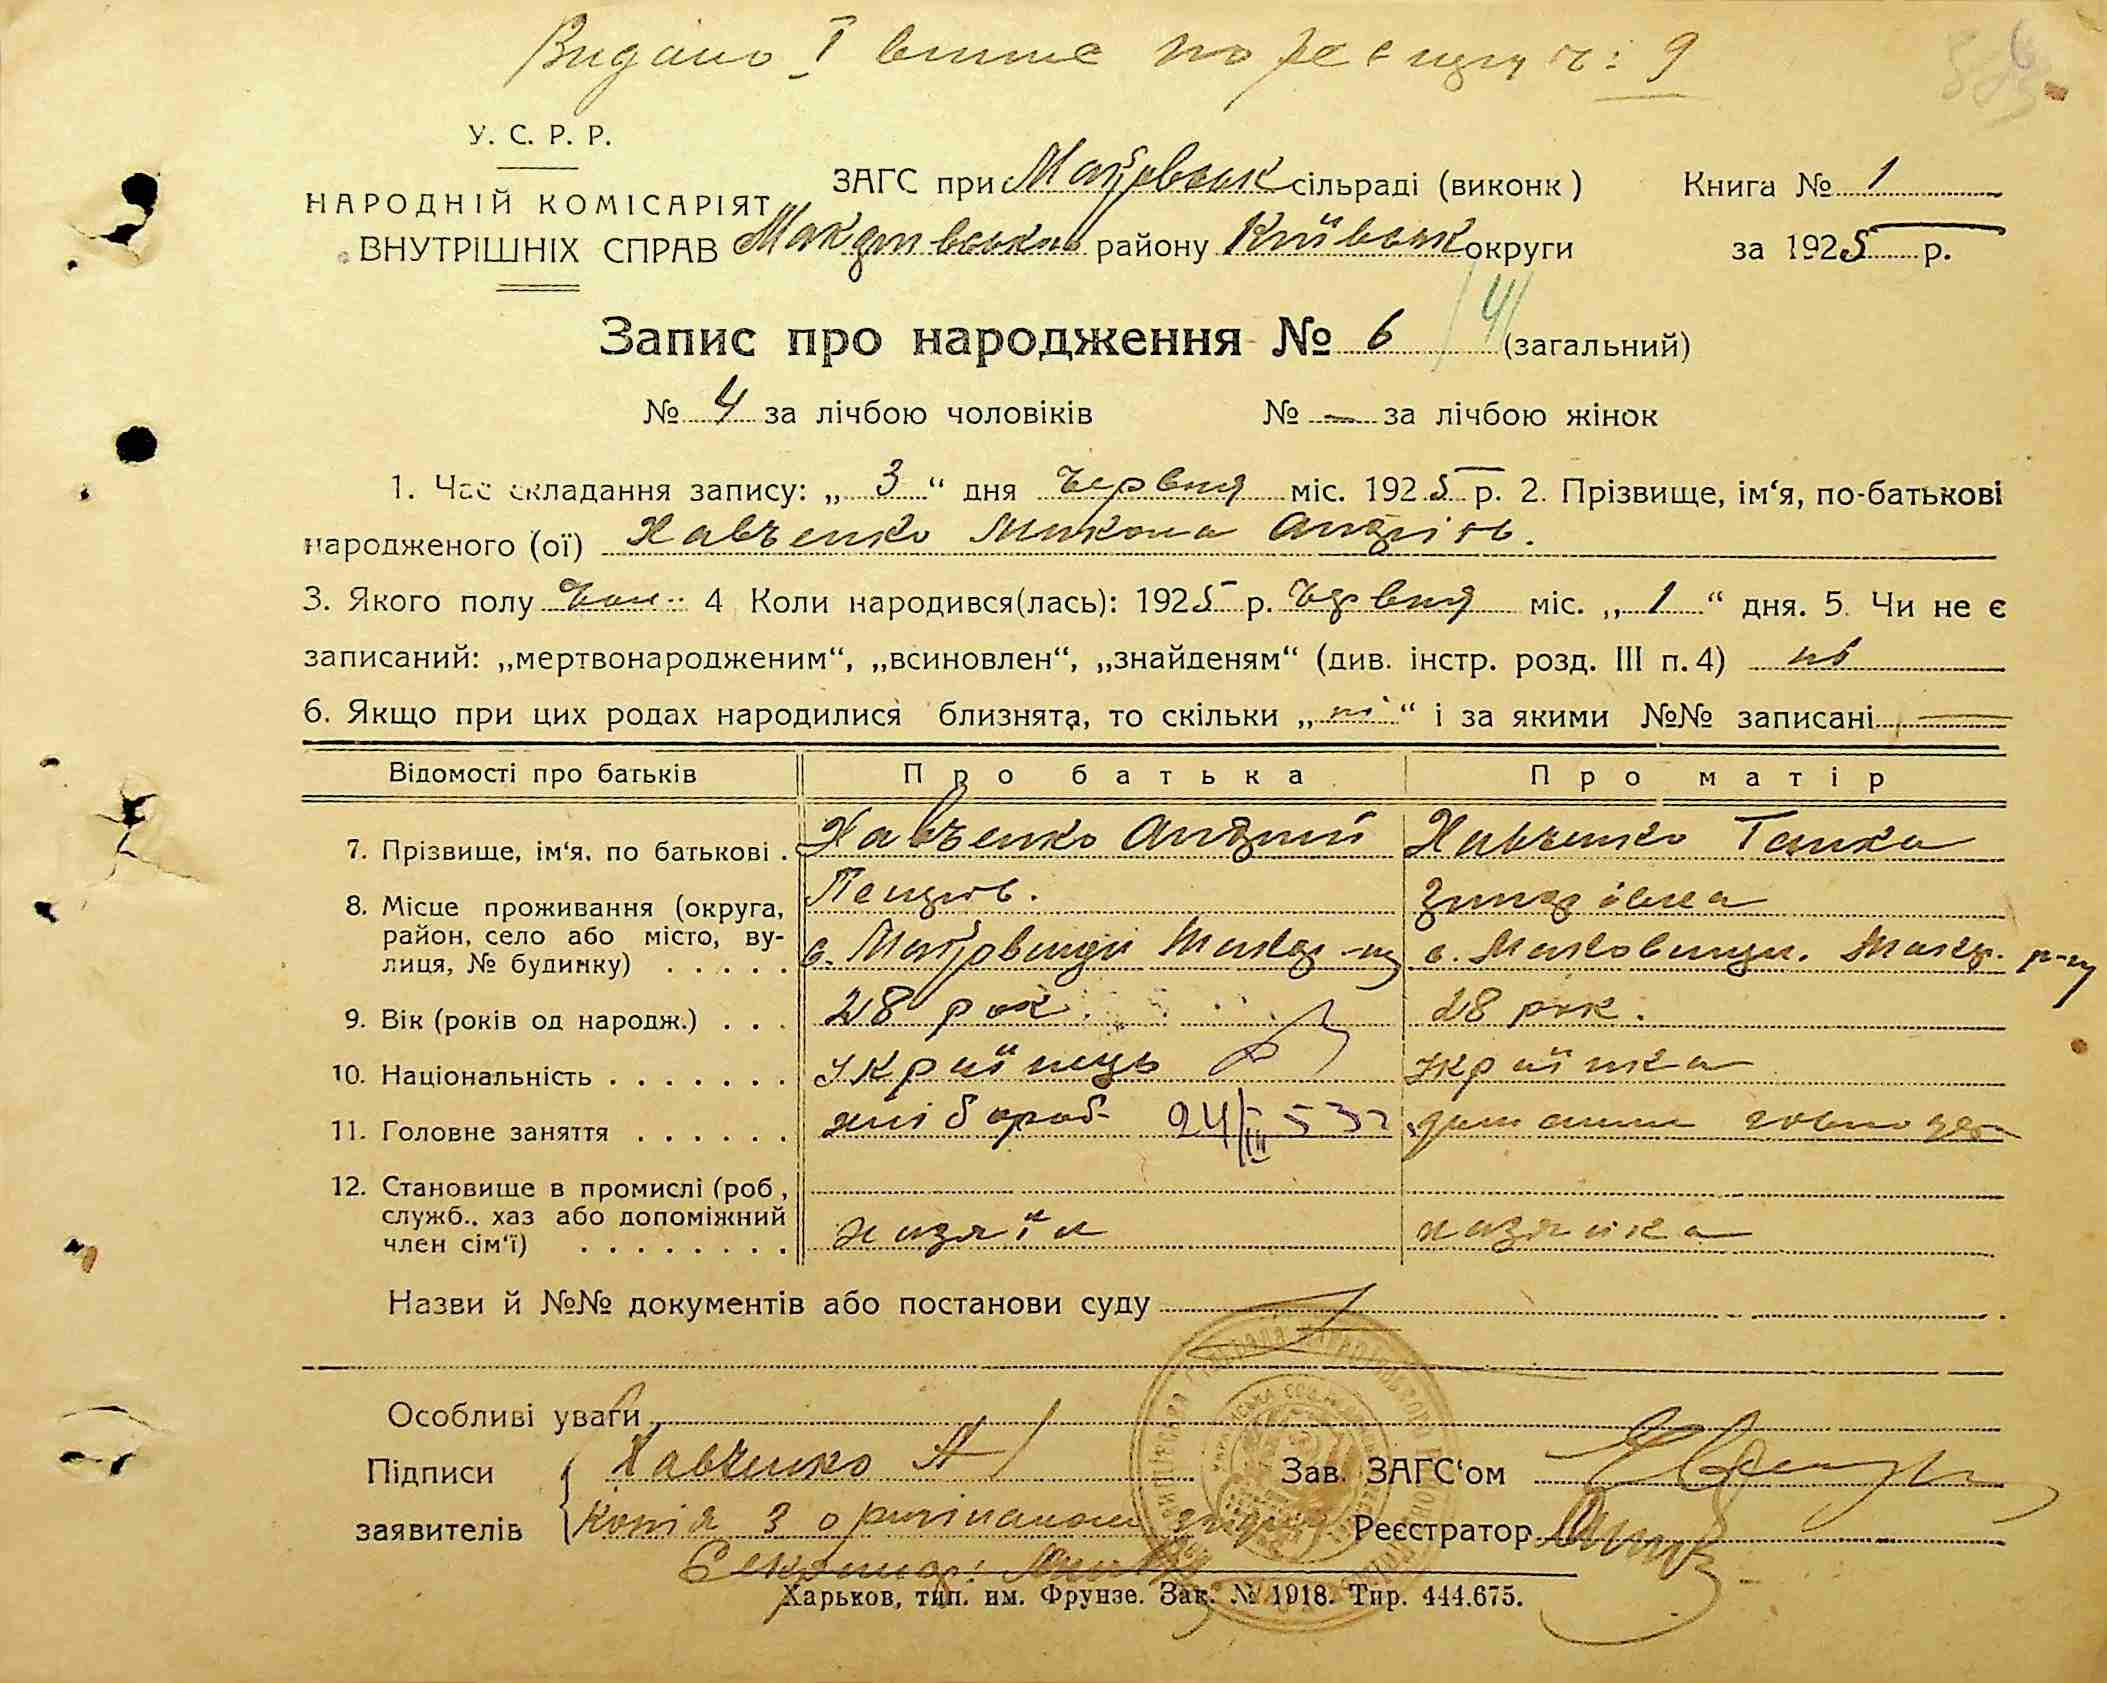 Видано І випис по реєстру № 9
У. С. Р. Р.
НАРОДНІЙ КОМІСАРІЯТ
ВНУТРІШНІХ СПРАВ
ЗАГС при сільраді (виконк)
Макарівськ району Київськ округи
Книга № 1
за 1925 р.
Запис про народження № 6 /4/ (загальний)
№ 4 за лічбою чоловіків № — за лічбою жінок
1. Час складання запису: „ 3 “ дня червня міс. 1925 р. 2. Прізвище, ім‘я, по-батькові
народженого (ої) Хавченко Микола Андрієв.
3. Якого полу чол. 4 Коли народився(лась): 1925 р. червня міс. „ 1 “ дня. 5. Чи не є
записаний: „мертвонародженим“, „всиновлен“, „знайденям“ (див. інстр. розд. III п. 4) ні
6. Якщо при цих родах народилися близнята, то скільки „ ні “ і за якими №№ записані —
Відомості про батьків Про батька Про матір
7. Прізвище, ім‘я, по батькові . Хавченко Андрий Хавченко Ганка
8. Місце проживання (округа, район, село або місто, вулиця, № будинку) . . . . .
9. Вік (років од народж.) . . . 28 рок. 28 рок.
10. Національність . . . . . . . українець українка
11. Головне заняття . . . . . . хлібороб 24/III 53 г домашне
12. Становище в промислі (роб,
служб., хаз або допоміжний
член сім‘ї) . . . . . . . . хазяїн хазяйка
Назви й №№ документів або постанови суду
Особливі уваги
Підписи Хавченко А Зав. ЗАГС‘ом
заявителів Копія з оригіналом Реєстратор
Секретар:
Харьков, тип. им. Фрунзе. Зак. № 1918. Тир. 444.675.